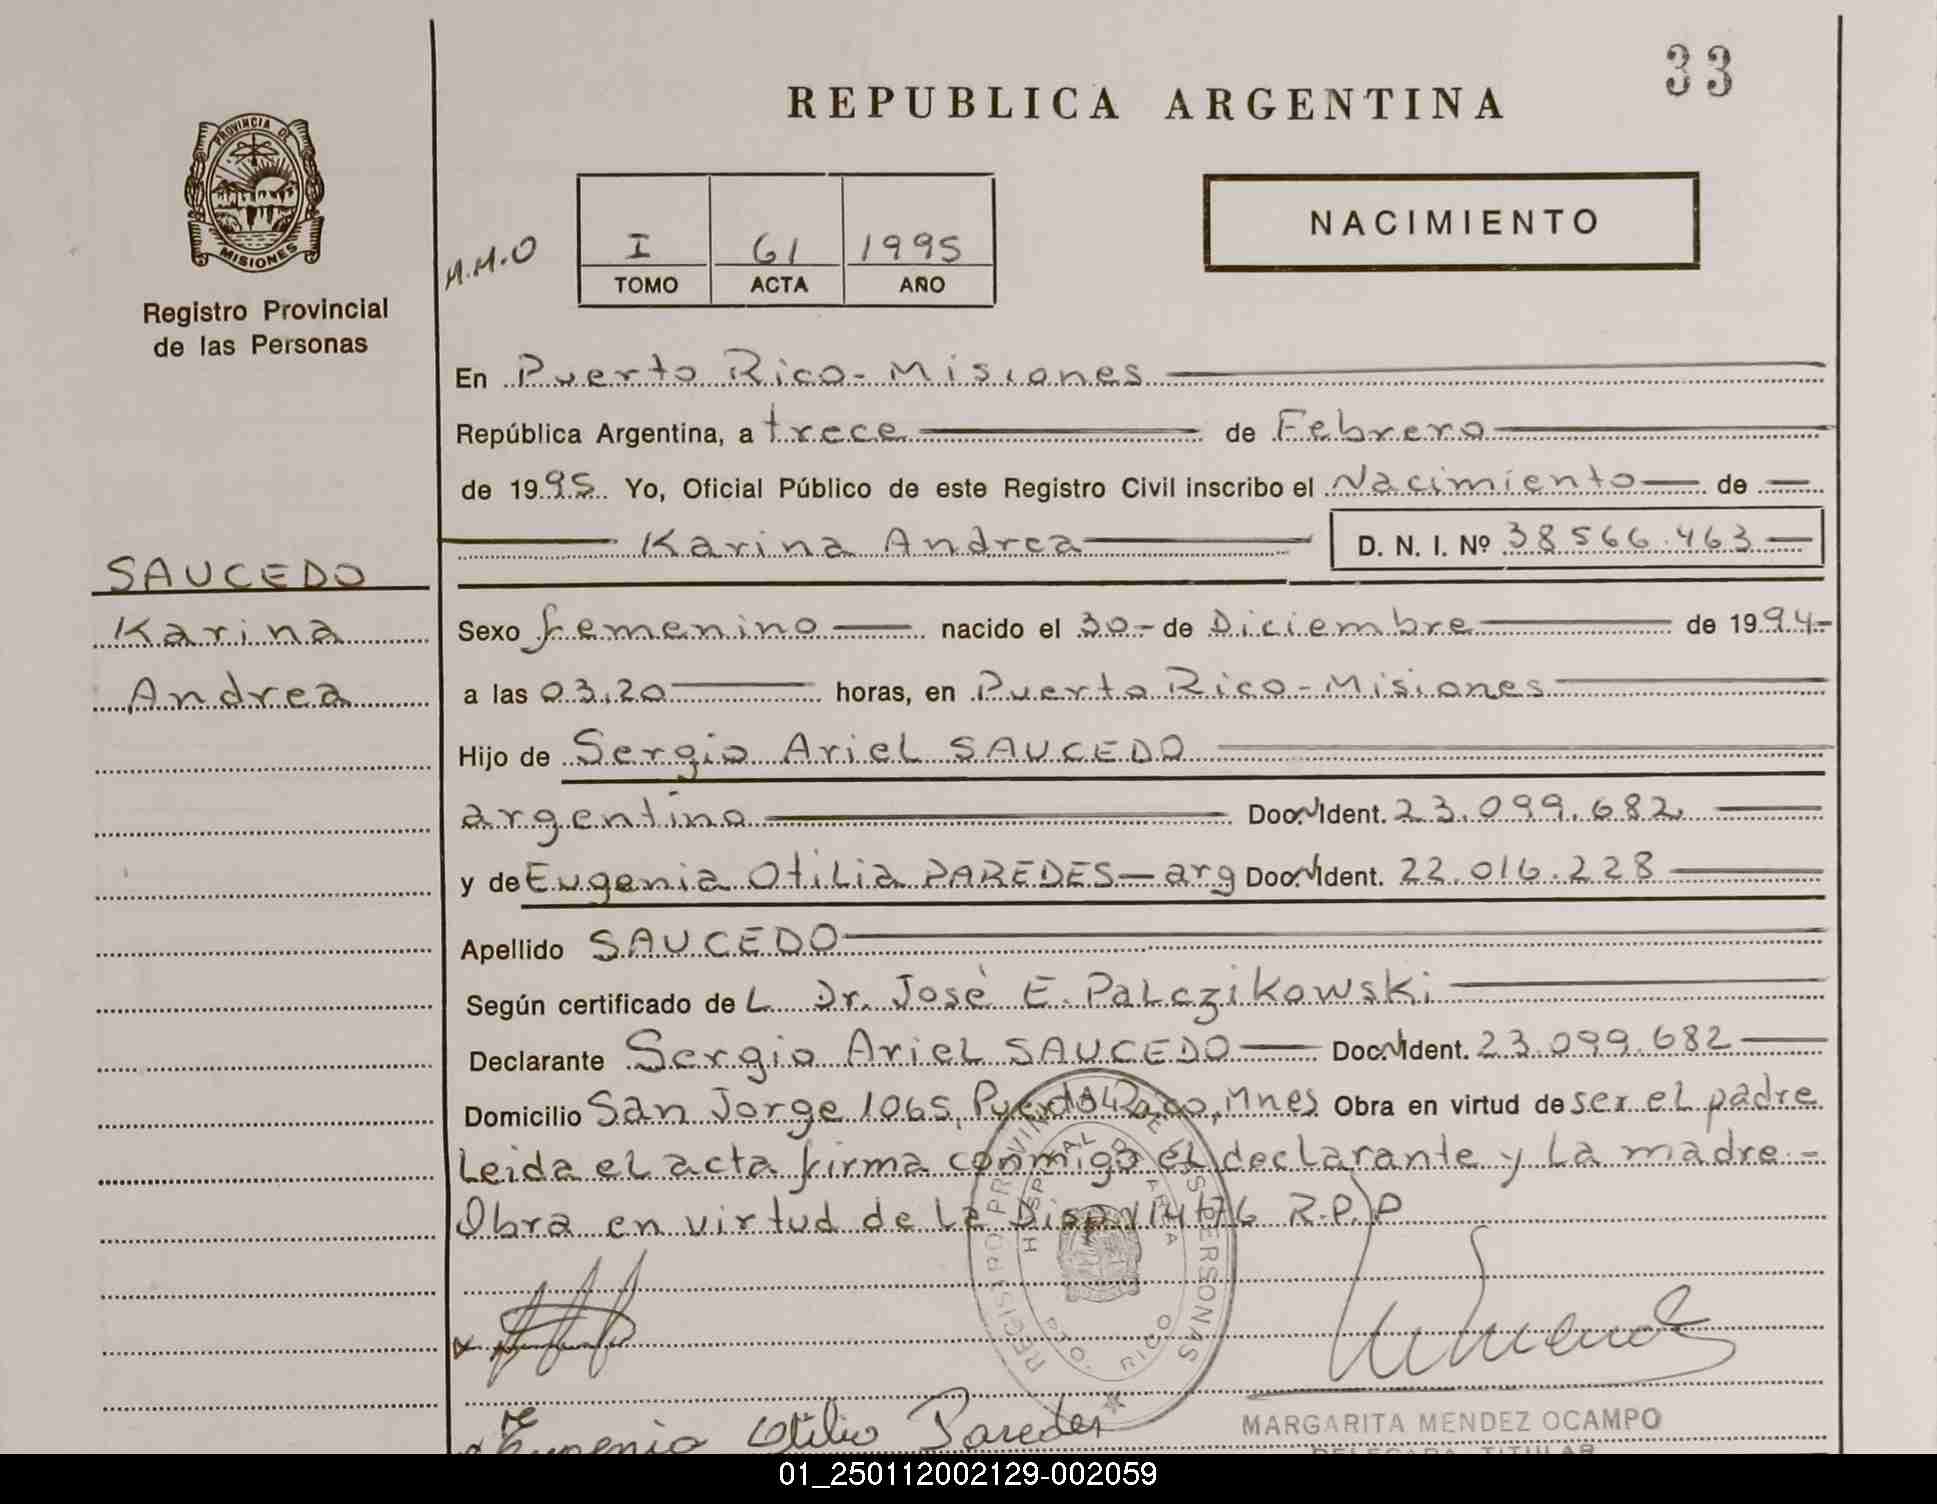 33
REPUBLICA ARGENTINA
PROVINCIA DE
MISIONES
Registro Provincial
de las Personas
A.M.O
I 61 1995
TOMO ACTA AÑO
NACIMIENTO
En Puerto Rico - Misiones
República Argentina, a trece de Febrero
de 1995. Yo, Oficial Público de este Registro Civil inscribo el Nacimiento de
Karina Andrea D. N. I. Nº 38566.463
SAUCEDO
Karina
Andrea
Sexo femenino nacido el 30 - de Diciembre de 1994-
a las 03.20 horas, en Puerto Rico - Misiones
Hijo de Sergio Ariel SAUCEDO
argentino Doc. Ident. 23.099.682
y de Eugenia Otilia PAREDES - arg Doc. Ident. 22.016.228
Apellido SAUCEDO
Según certificado del Dr. José E. Palczikowski
Declarante Sergio Ariel SAUCEDO Doc. Ident. 23.099.682
Domicilio San Jorge 1065, Puerto Rico, Mnes Obra en virtud de ser el padre
Leida el acta firma conmigo él declarante y la madre -
Obra en virtud de la Disp. 114/76 R.P.P
REGISTRO PROVINCIAL DE LAS PERSONAS
HOSPITAL DE AREA
PTO. RICO
Eugenia Otilia Paredes
MARGARITA MENDEZ OCAMPO
DELEGADA TITULAR
01_250112002129-002059